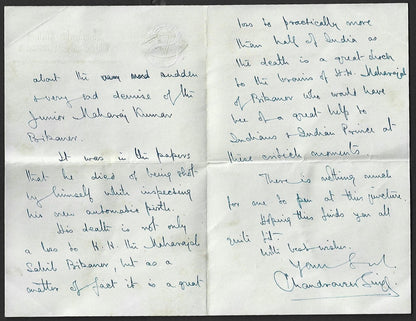 about the very sudden
& very sad demise of the
Junior Maharaj Kumar
Bikaner.
It was in the papers
that he died of being shot
by himself while inspecting
his new automatic pistle.
His death is not only
a loss to H.H. the Maharajah
Sahib Bikaner, but as a
matter of fact it is a great
loss to practically more
than half of India as
the death is a great shock
to the brains of H.H. Maharajah
of Bikaner who would have
be of a great help to
Indians & Indian Prince at
these moments.
There is nothing much
for me to pen at this juncture.
Hoping this finds you all
quite fit.
With best wishes.
Yours
Chandraveer Singh